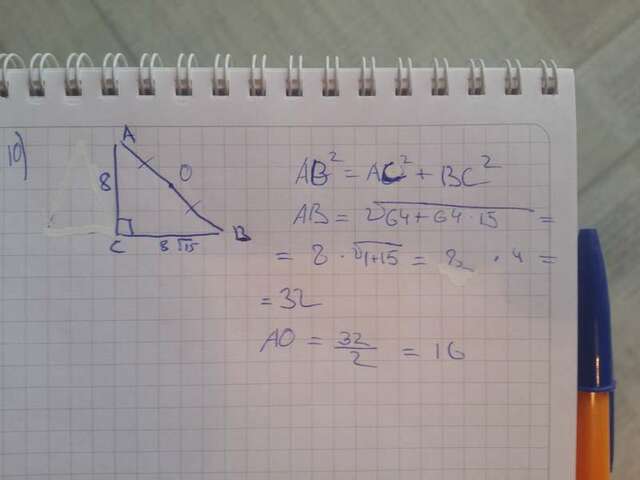 10)
A
O
8
C
8√15
B
AB² = AC² + BC²
AB = √64 + 64 · 15 =
= 8 · √1+15 = 8 · 4 =
= 32
AO = 32/2 = 16